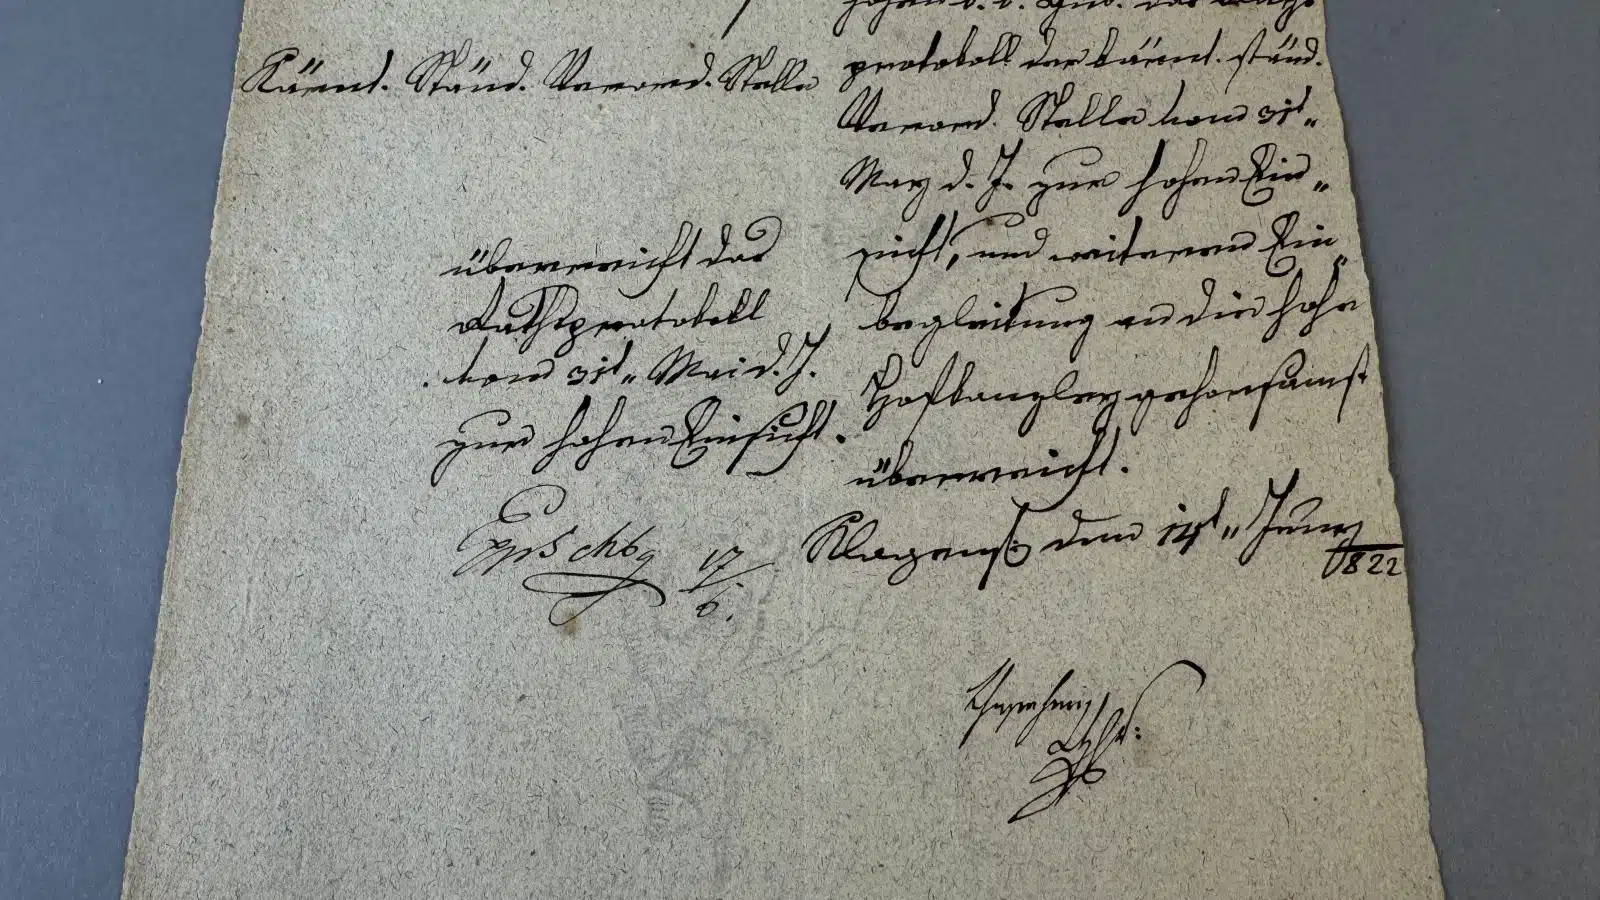 Kärnt. Ständ. Verord. Stelle
überreicht das
Rathsprotokoll
vom 31t„ Mai d. J.
zur hohen Einsicht.
17/6.
das Raths
protokoll der kärnt. ständ.
Verord. Stelle vom 31t„
May d. J. zur hohen Ein„
sicht, und weiteren Ein„
begleitung an die hohe
Hofkanzley gehorsamst
überreicht.
Klagenf: den 14t„ Juny
1822